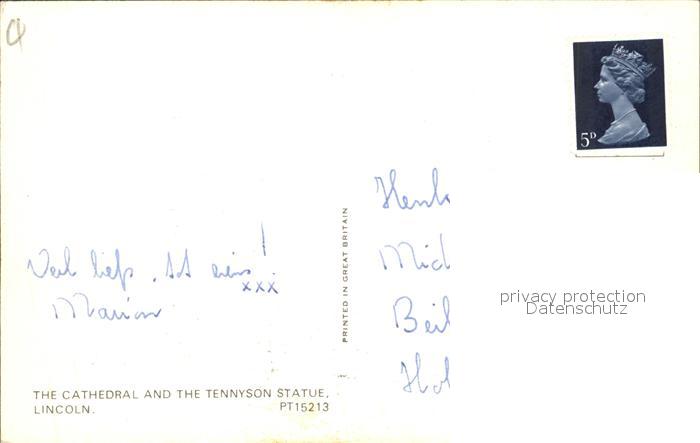 5D
Henk
Mid
Veel liefs, tot eens!
xxx
Marion
Beil
Hol
PRINTED IN GREAT BRITAIN
privacy protection
Datenschutz
THE CATHEDRAL AND THE TENNYSON STATUE,
LINCOLN. PT15213